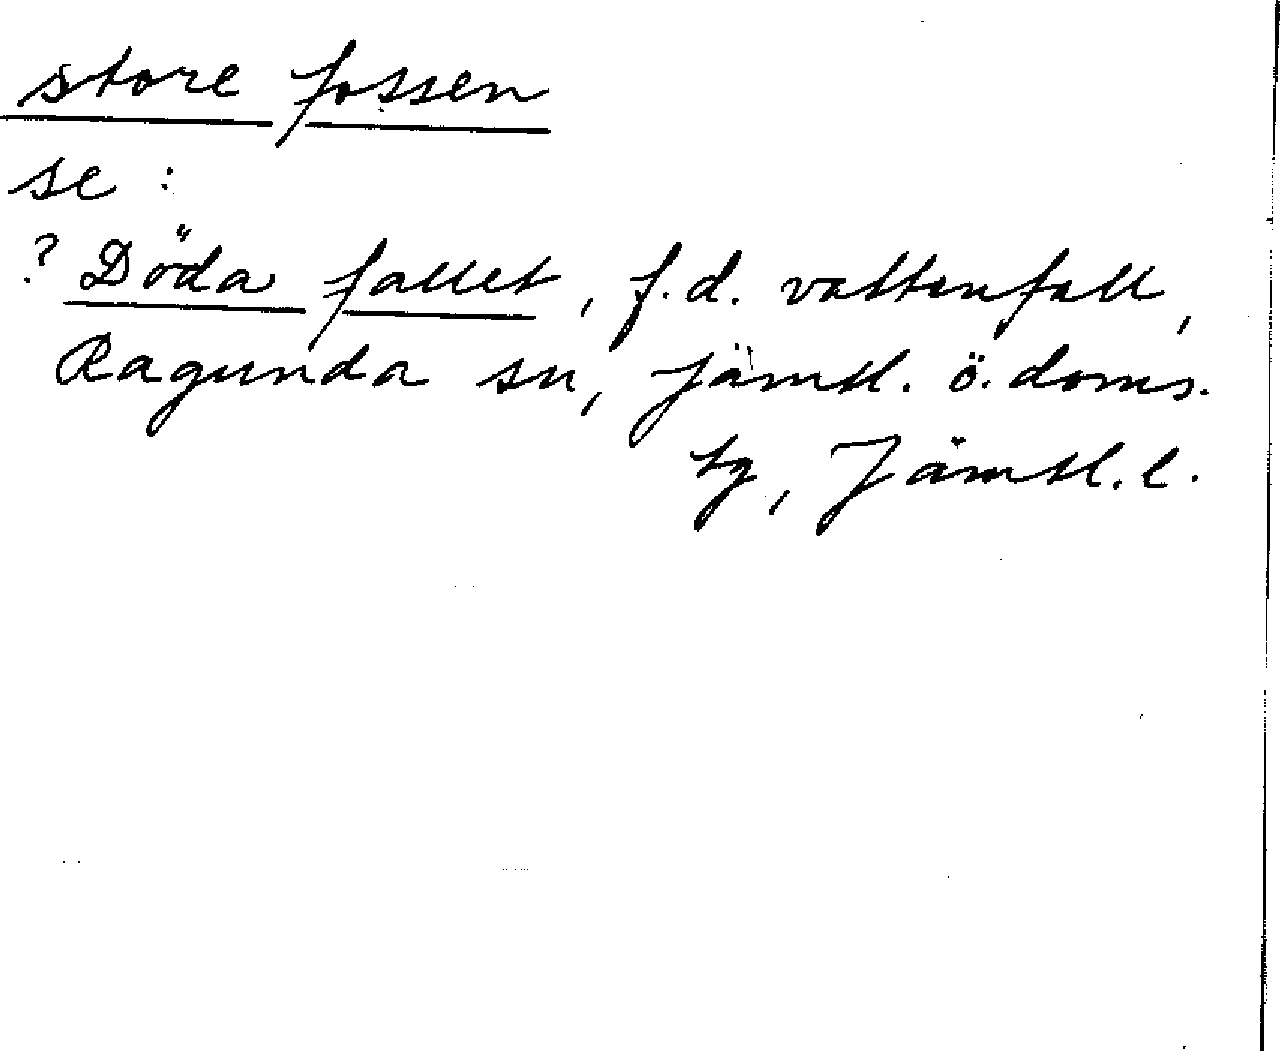 store fossen
se :
? Döda fallet, f.d. vattenfall,
Ragunda sn, Jämtl. ö. doms.
tg, Jämtl. l.